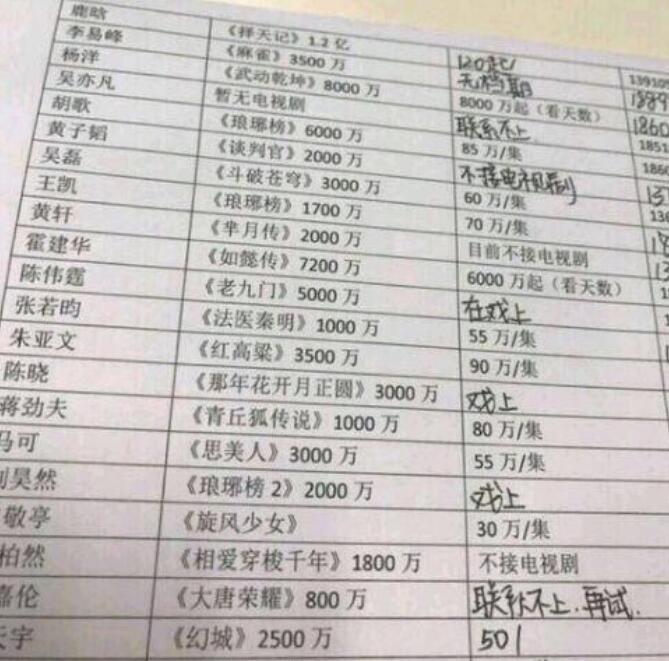 鹿晗 《择天记》1.2 亿 120起/ 13910
李易峰 《麻雀》3500 万 无档期
杨洋 《武动乾坤》8000 万 8000 万起（看天数） 1860
吴亦凡 暂无电视剧 联系不上 1851
胡歌 《琅琊榜》6000 万 85 万/集 1860
黄子韬 《谈判官》2000 万 不接电视剧
吴磊 《斗破苍穹》3000 万 60 万/集
王凯 《琅琊榜》1700 万 70 万/集
黄轩 《芈月传》2000 万 目前不接电视剧
霍建华 《如懿传》7200 万 6000 万起（看天数）
陈伟霆 《老九门》5000 万 在戏上
张若昀 《法医秦明》1000 万 55 万/集
朱亚文 《红高粱》3500 万 90 万/集
陈晓 《那年花开月正圆》3000 万 戏上
蒋劲夫 《青丘狐传说》1000 万 80 万/集
马可 《思美人》3000 万 55 万/集
刘昊然 《琅琊榜 2》2000 万 戏上
敬亭 《旋风少女》 30 万/集
柏然 《相爱穿梭千年》1800 万 不接电视剧
嘉伦 《大唐荣耀》800 万 联系不上.再试.
天宇 《幻城》2500 万 50/